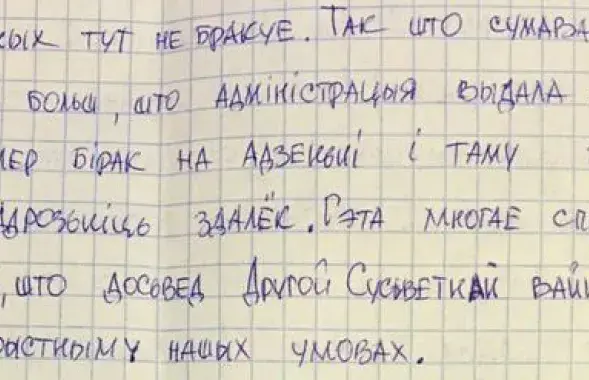 сых тут не бракуе. Так што сумарза
больш, што адміністрацыя выдала
мер бірак на адзеньні і таму
дрозьніць здалёк. Гэта многае сп
, што досьвед Другой Сусьветнай вай
рыстным у нашых умовах.